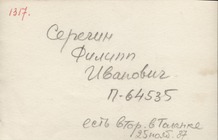 1317.
Серегин
Филипп
Иванович
П-64535
есть втор. в Таганке
25 нояб. 37